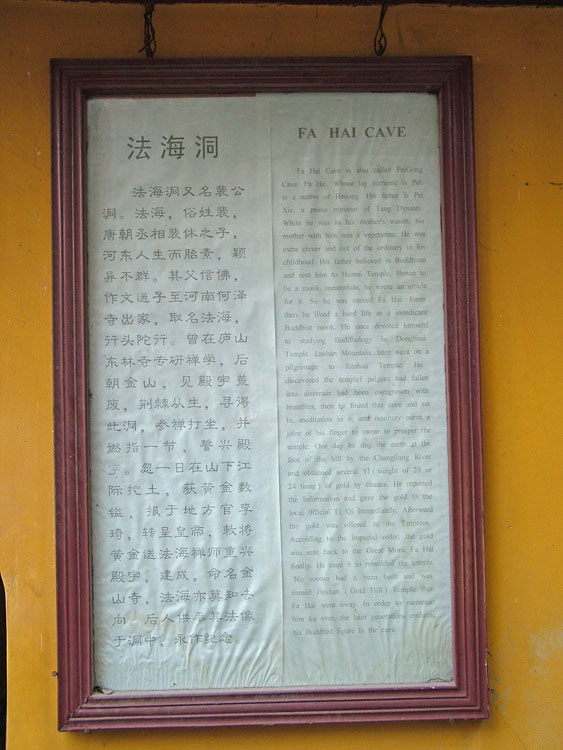 法海洞
法海洞又名裴公
洞。法海，俗姓裴，
唐朝丞相裴休之子，
河东人生而胎素，颖
异不群。其父信佛，
作文送子至河南何泽
寺出家，取名法海，
行头陀行。曾在庐山
东林寺专研禅学，后
朝金山，见殿宇荒
废，荆棘从生，寻得
此洞，参禅打坐，并
燃指一节，誓兴殿
宇。忽一日在山下江
际挖土，获黄金数
镒，报于地方官李
琦，转呈皇帝，敕将
黄金送法海禅师重兴
殿宇，建成，命名金
山寺，法海亦莫知去
向，后人供奉其法像
于洞中，永作纪念。
FA HAI CAVE
Fa Hai Cave is also called PeiGong
Cave. Fa Hai, Whose lay surname is Pei,
is a native of Hedong. His father is Pei
Xiu, a prime minister of Tang Dynasty.
While he was in his mother's womb, his
mother with him was a vegetarian. He was
extra clever and out of the ordinary in his
childhood. His father believed in Buddhism
and sent him to Hezesi Temple, Henan to
be a monk, meanwhile, he wrote an article
for it. So he was named Fa Hai. From
then he lived a hard life as a mendicant
Buddhist monk. He once devoted himself
to studying Buddhology in Donglinsi
Temple, Lushan Mountain, later went on a
pilgrimage to Jinshan Temple. He
discovered the temple palaces had fallen
into disrepair had been overgrown with
brambles, then he found this cave and sat
in, meditation in it, and resolutely burn a
joint of his finger to swear to prosper the
temple. One day he dug the earth at the
foot of the hill by the Changjiang River
and obtained several YI ( weight of 20 or
24 liang ) of gold by chance. He reported
the information and gave the gold to the
local official Li Qi immediately. Afterward
the gold was offered to the Emperor.
According to the Imperial order, the gold
was sent back to the Great Monk Fa Hai
finally. He used it to rebuilded the temple.
No sooner had it been built and was
named Jinshan ( Gold Hill ) Temple than
Fa Hai went away. In order to memorize
him for ever, the later generations enshrine
his Buddhist figure in the cave.